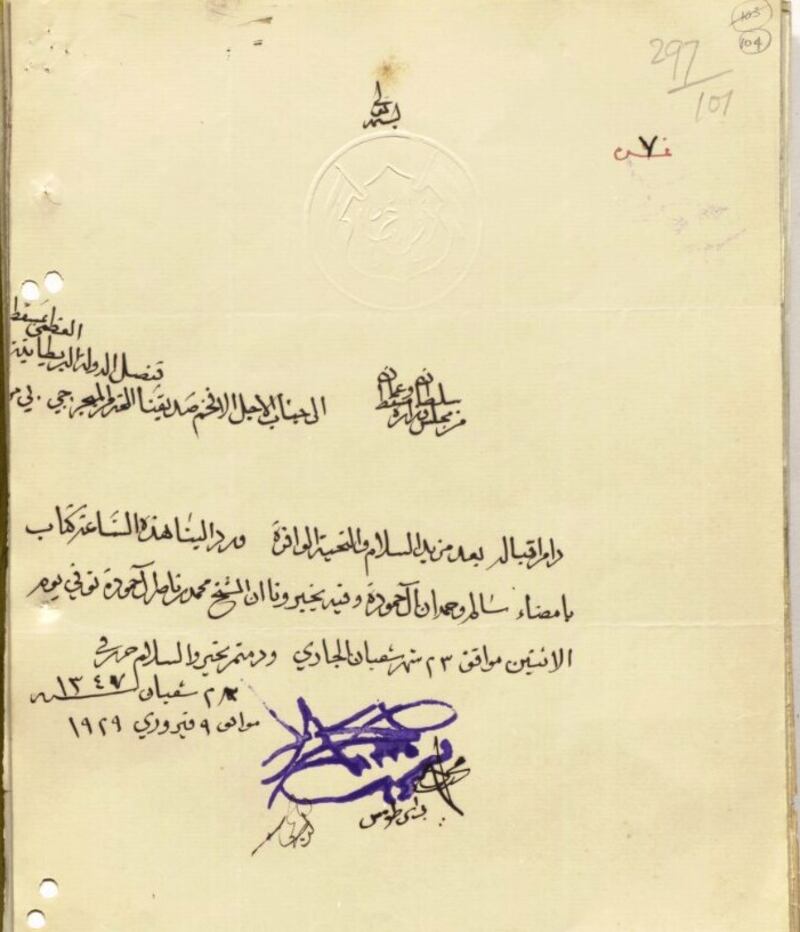 103
104
297
101
بسمه تعالى
نمرة ٧
من مجلس وزارة
سلطان مسقط وعمان
الى جناب الاجل الافخم صديقنا الغر الميجر جي بي
قنصل الدولة البريطانية
العظمى بمسقط
دام اقباله بعد مزيد السلام والتحية الوافرة ورد الينا هذه الساعة كتاب
بامضاء سالم وحمدان آل حمودة وفيه يخبرونا ان الشيخ محمد بن ناصر آل حمودة توفي يوم
الاثنين موافق ٢٣ شهر شعبان الجاري ودمتم بخير والسلام حرر في
٢٨ شعبان سنه ١٣٤٧
موافق ٩ فبروري ١٩٢٩